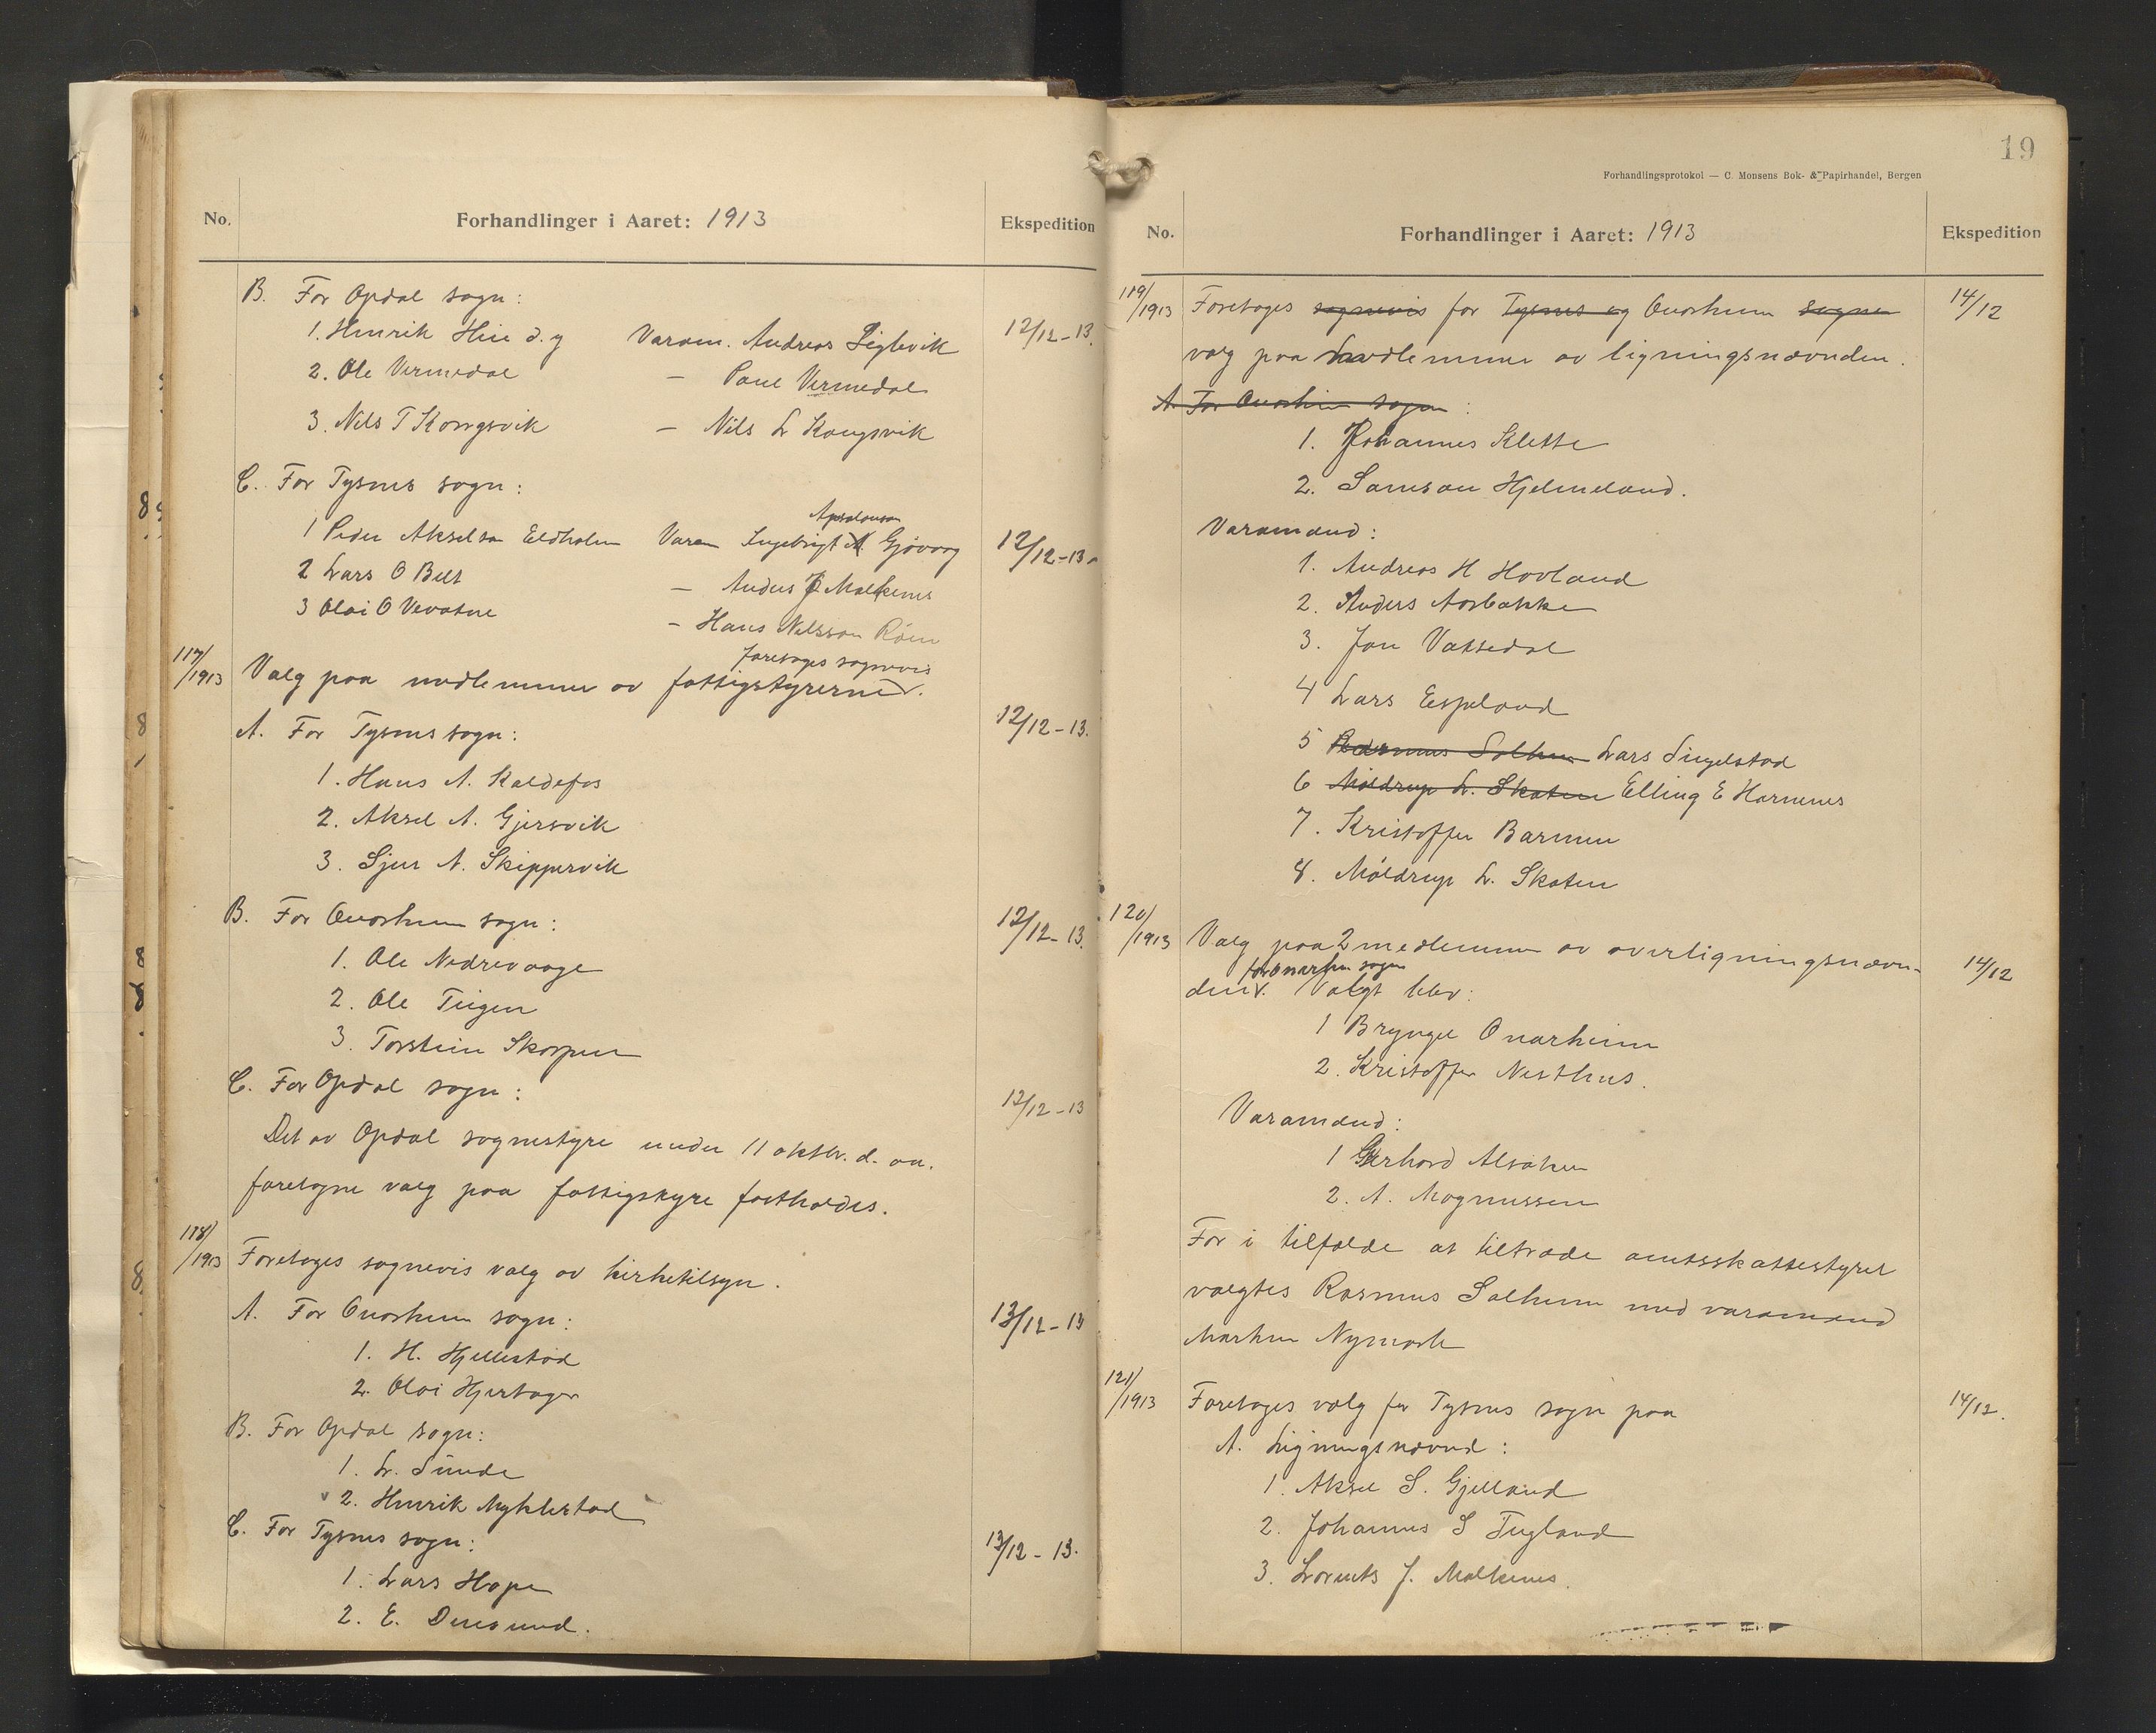 No.
Forhandlinger i Aaret: 1913
Ekspedition
B. For Opdal sogn:
1. Henrik Hiie d.y Varam. Andreas Siglevik 12/12-13.
2. Ole Vermedal — Paul Vermedal
3. Nils T Kongsvik — Nils L Kongsvik
C. For Tysnes sogn:
Apsalonson
1 Peder Akselson Eldholm Varam Ingebrigt A. Gjøvaag 12/12-13.
2 Lars O Belt — Anders J Malkenes
3 Olai O Vevatne — Hans Nilsson Röen
foretages sognevis
117/1913 Valg paa medlemmer av fattigstyrerne v.
A. For Tysnes sogn: 12/12-13.
1. Hans A. Kaldefos
2. Aksel A. Gjersvik
3. Sjur A. Skippervik
B. For Onarheim sogn: 12/12-13.
1. Ole Nedrevaage
2. Ole Teigen
3. Torstein Skorpen
C. For Opdal sogn: 12/12-13
Det av Opdal sognestyre under 11 oktbr. d. aa.
foretagne valg paa fattigstyre fastholdes.
118/1913 Foretages sognevis valg av kirketilsyn.
A. For Onarheim sogn: 13/12-13
1. H. Hjellestad
2. Olai Hjertager
B. For Opdal sogn:
1. L. Sunde
v 2. Henrik Myklestad
C. For Tysnes sogn: 13/12-13.
1. Lars Hope
2. E. Dresund.
19
Forhandlingsprotokol — C. Monsens Bok- & Papirhandel, Bergen
No.
Forhandlinger i Aaret: 1913
Ekspedition
119/1913 Foretages sognevis for Tysnes og Onarheim sogne 14/12
valg paa medlemmer av ligningsnævnden.
A. For Onarheim sogn:
1. Johannes Klette
2. Samson Hjelmeland.
Varamænd:
1. Andreas H Hovland
2. Anders Aarbakke
3. Jon Vaksdal
4 Lars Espeland
5 Rasmus Solheim Lars Singelstad
6 Møldrup L. Skaten Elling E Harnenes
7. Kristoffer Barmen
8. Møldrup L. Skaten
120/1913 Valg paa 2 medlemmer av overligningsnævn- 14/12
for Onarheim sogn
den v. Valgt blev:
1 Bryngel Onarheim
2. Kristoffer Nesthus.
Varamænd:
1 Gerhard Alsaker
2. A. Magnussen
For i tilfælde at tiltræde amtsskattestyret
valgtes Rasmus Solheim med varamand
Markus Nymark
121/1913 Foretages valg for Tysnes sogn paa 14/12.
A. Ligningsnævnd:
1. Aksel S. Gjelland
2. Johannes S Tegland
3. Lorents J. Malkenes.